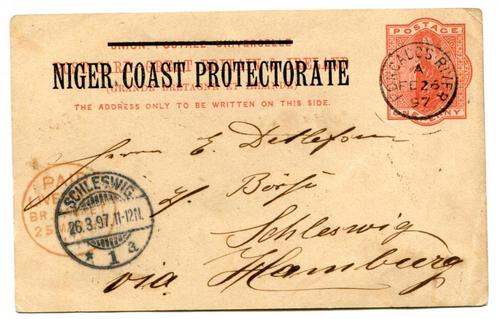 UNION POSTALE UNIVERSELLE
NIGER COAST PROTECTORATE
(GRANDE BRETAGNE ET IRLANDE)
THE ADDRESS ONLY TO BE WRITTEN ON THIS SIDE.
POSTAGE
ONE PENNY
FORCADOS RIVER
A
FE 26
97
Herrn E. Detlefsen
z. Börse
Schleswig
via Hamburg
PAID
BR. PACKET
25 MA
SCHLESWIG
26.3.97.11-12N.
* 1 a